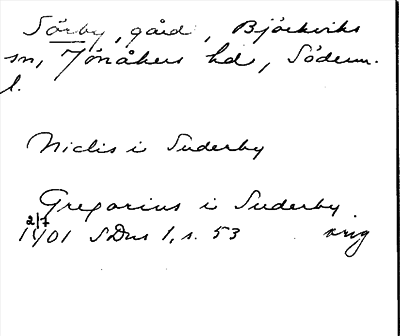 Sörby, gård, Björkviks
sn, Jönåkers hd, Söderm.
l.
Niclis i Suderby
Gregorius i Suderby.
2/7
1401 SDns 1, s. 53 orig